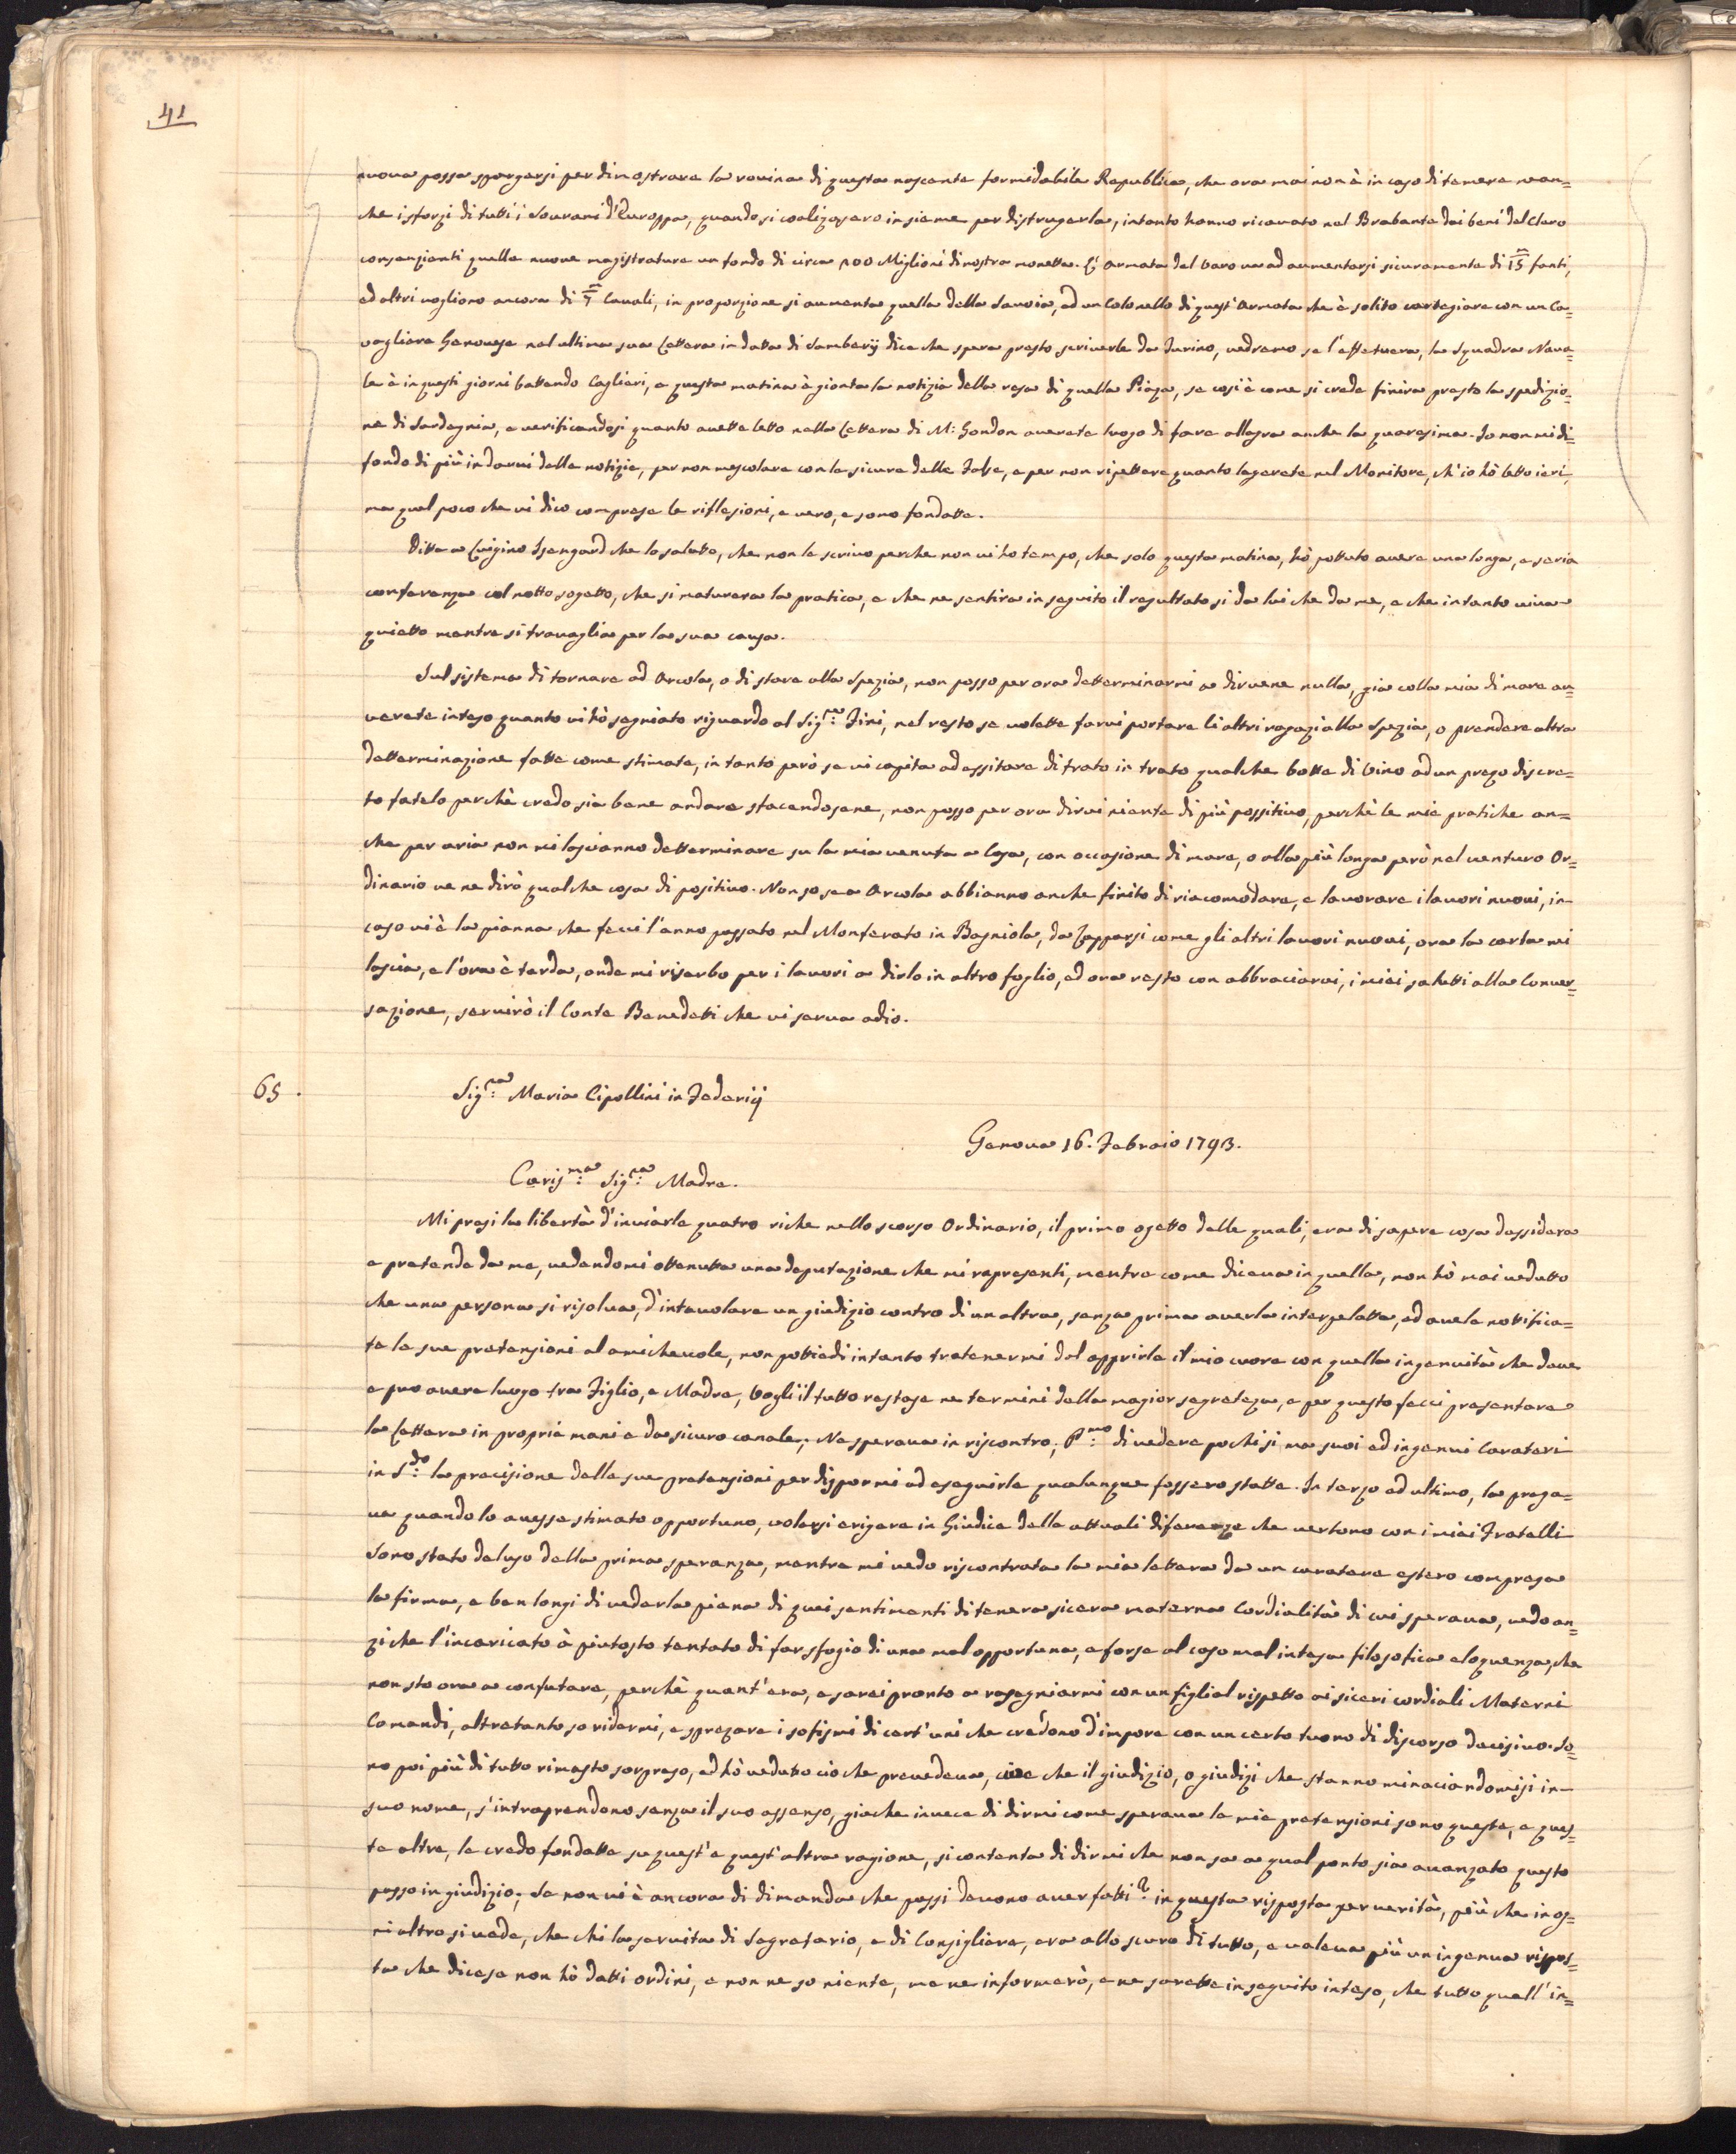 41
nuova possa spargersi per dimostrare la rovina di questa nascente formidabile Republica, che ora mai non è in caso di temere nean=
che i sforzi di tutti i Sovrani d'Europpa, quando si coalizasero insieme per distrugerla, intanto hanno ricavato nel Brabante dai beni del Clero
consenzienti quelle nuove magistrature un fondo di circa 200 Miglioni di nostra moneta. L'armata del Varo va ad aumentarsi sicuramente di 15 fanti,
ed altri vogliono ancora di 7 Cavali, in proporzione si aumenta quella della Savoia, ad un Colonello di quest'Armata che è solito cartegiare con un Ca=
vagliere Genovese nel ultima sua Lettera in data di Samberij dice che spera presto scriverle da Turino, vedremo se l'effetuera, la Squadra Nava=
le è in questi giorni battendo Cagliari, e questa matina è gionta la notizia della resa di quella Piaza, se così è come si crede finira presto la spedizio=
ne di Sardegnia, e verificandosi quanto avette letto nella Lettera di M: Gondon averete luogo di fare allegra anche la quaresima. Io non mi di=
fondo di più in darvi delle notizie, per non mescolare con le sicure delle False, e per non ripettere quanto legerete nel Monitore, ch'io hò letto ieri,
ma quel poco che vi dico comprese le riflesioni, e vero, e sono fondatte.
Ditte a Luigino Isengard che lo salutto, che non le scrivo perche non vi ho tempo, che solo questa matina, hò pottuto avere una longa, e seria
conferenza col notto sogetto, che si maturera la pratica, e che ne sentira in seguito il resultato si da lui che da me, e che intanto viva
quietto mentre si travaglia per la sua causa.
Sul sistema di tornare ad Arcola, o di stare alla Spezia, non posso per ora detterminarmi a dirvene nulla, gia colla mia di mare av=
verete inteso quanto vi hò segniato riguardo al Sig:re Fini, nel resto se volette farvi portare li altri ragazi alla Spezia, o prendere altra
detterminazione fatte come stimate, in tanto però se vi capita ad essitare di trato in trato qualche botte di Vino ad un prezo discre=
to fatelo perchè credo sia bene andare sfacendosene, non posso per ora dirvi niente di più possitivo, perchè le mie pratiche an=
che per aria non mi lasciano detterminare su la mia venuta a Casa, con occasione di mare, o alla più longa però nel venturo Or=
dinario ve ne dirò qualche cosa di positivo. Non so se a Arcola abbianno anche finito di riacomodare, e lavorare i lavori nuovi, in
caso vi è la pianna che fecci l'anno passato nel Monferato in Bagniola, da Zapparsi come gli altri lavori nuovi, ora la carta mi
lascia, e l'ora è tarda, onde mi riserbo per i lavori a dirlo in altro foglio, ed ora resto con abbraciarvi, i miei salutti alla Conver=
sazione, servirò il Conte Benedetti che vi serva adio.
65. Sig:ra Maria Cipollini in Federij
Genova 16. Febraio 1793.
Caris:ma Sig:ra Madre.
Mi presi la libertà d'inviarle quatro riche nello scorso Ordinario, il primo ogetto delle quali, era di sapere cosa dessidera
e pretende da me, vedendomi ottenutta una deputazione che mi rapresenti, mentre come diceva in quella, non hò mai vedutto
che una persona si risolva, d'intavolare un giudizio contro di un altra, senza prima averla interpelatta, ed avele nottifica=
te le sue pretensioni al amichevole, non pottiedi intanto tratenermi dal apprirle il mio cuore con quella ingenuità che deve
e puo avere luogo tra Figlio, e Madre, Vogli'il tutto restase ne termini della magior segreteza, e per questo fecci presentare
la Lettera in proprie mani e da sicuro canale; Ne sperava in riscontro, P:mo di vedere pochisi ma suoi ed ingenui Carateri
in S:do la precisione delle sue pretensioni per dispormi ad eseguirle qualunque fossero statte. In terzo ed ultimo, la prega=
va quando lo avesse stimato opportuno, volersi erigere in Giudice delle attuali diferenze che vertono con i miei Fratelli
Sono stato deluso della prima speranza, mentre mi vedo riscontrata la mia lettera da un caratere estero compresa
la firma, e ben longi di vederla piena di quei sentimenti di tenera sicera materna Cordialità di cui sperava, vedo an=
zi che l'incaricato à piutosto tentato di far sfogio di una mal opportuna, e forse al caso mal intesa filosofica eloquenza, che
non sto ora a confutare, perchè quant'era, e sarei pronto a rasegniarmi con un figlial rispetto ai siceri cordiali Materni
Comandi, altretanto so ridermi, e sprezare i sofismi di cert'uni che credono d'impore con un certo tuono di discorso decisivo. So=
no poi più di tutto rimasto sorpreso, ed hò vedutto cio che prevedeva, cioe che il giudizio, o giudizi che stanno minaciandomisi in
suo nome, s'intraprendono senza il suo assenso, giache invece di dirmi come sperava le mie pretensioni sono queste, e ques=
te altre, le credo fondatte su quest'e quest'altra ragione, si contenta di dirmi che non sa a qual ponto sia avanzato questo
passo in giudizio; Se non vi è ancora di dimanda che passi devono aver fatti? in questa risposta per verità, più che in og=
ni altra si vede, che chi la servita di Segretario, e di Consigliere, era allo scuro di tutto, e valeva più un ingenua rispos=
ta che dicese non hò datti ordini, e non ne so niente, me ne informerò, e ne sarette in seguito inteso, che tutto quell'in=